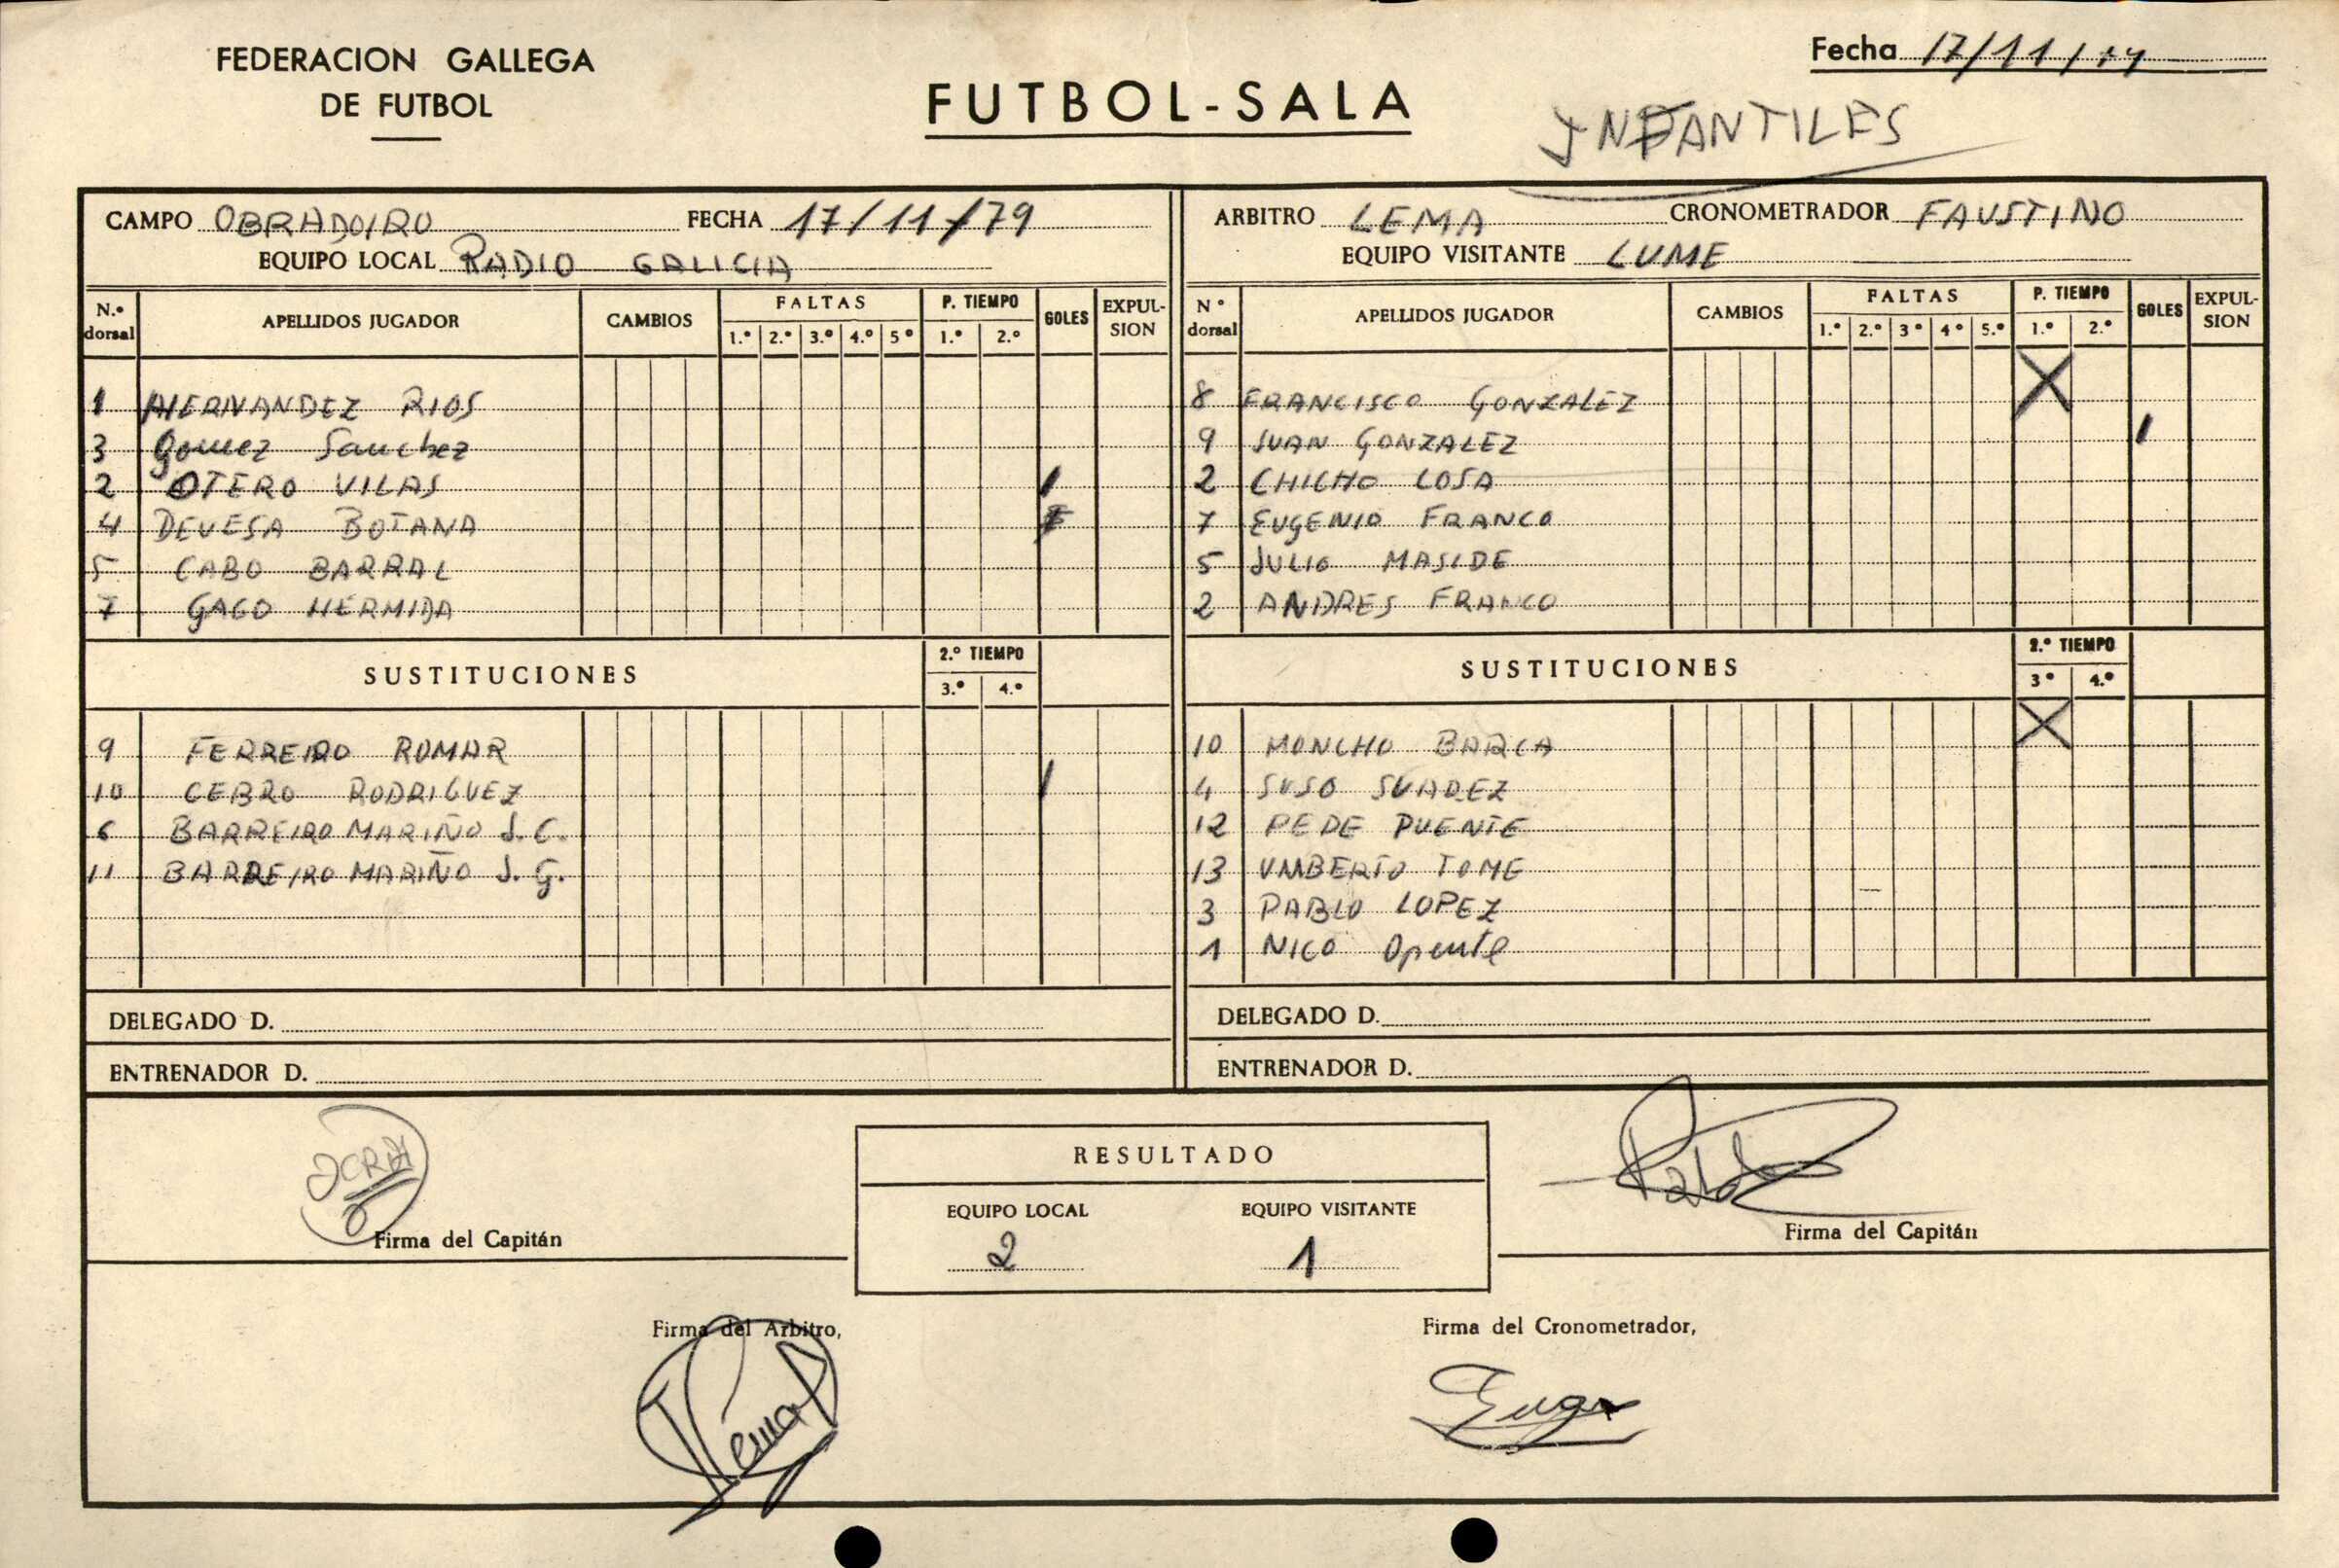 FEDERACION GALLEGA
DE FUTBOL
FUTBOL-SALA
Fecha 17/11/79
INFANTILES
CAMPO OBRADOIRO FECHA 17/11/79
EQUIPO LOCAL RADIO GALICIA
N.º dorsal APELLIDOS JUGADOR CAMBIOS FALTAS 1.º 2.º 3.º 4.º 5º P. TIEMPO 1.º 2.º GOLES EXPUL-SION
1 HERNANDEZ RIOS
3 Gomez Sanchez
2 OTERO VILAS 1
4 DEVESA BOTANA
5 CABO BARRAL
7 GAGO HERMIDA
SUSTITUCIONES 2.º TIEMPO 3.º 4.º
9 FERREIRO ROMAR
10 CEBRO RODRIGUEZ 1
6 BARREIRO MARIÑO J. C.
11 BARREIRO MARIÑO J. G.
DELEGADO D.
ENTRENADOR D.
ARBITRO LEMA CRONOMETRADOR FAUSTINO
EQUIPO VISITANTE LUME
Nº dorsal APELLIDOS JUGADOR CAMBIOS FALTAS 1.º 2.º 3º 4º 5.º P. TIEMPO 1.º 2.º GOLES EXPUL-SION
8 FRANCISCO GONZALEZ X
9 JUAN GONZALEZ 1
2 CHICHO LOSA
7 EUGENIO FRANCO
5 JULIO MASIDE
2 ANDRES FRANCO
SUSTITUCIONES 2.º TIEMPO 3º 4.º
10 MONCHO BARCA X
4 SUSO SUAREZ
12 PEPE PUENTE
13 UMBERTO TOME
3 PABLO LOPEZ
1 NICO
DELEGADO D.
ENTRENADOR D.
Firma del Capitán
RESULTADO
EQUIPO LOCAL EQUIPO VISITANTE
2 1
Pablo
Firma del Capitán
Firma del Arbitro,
Lema
Firma del Cronometrador,